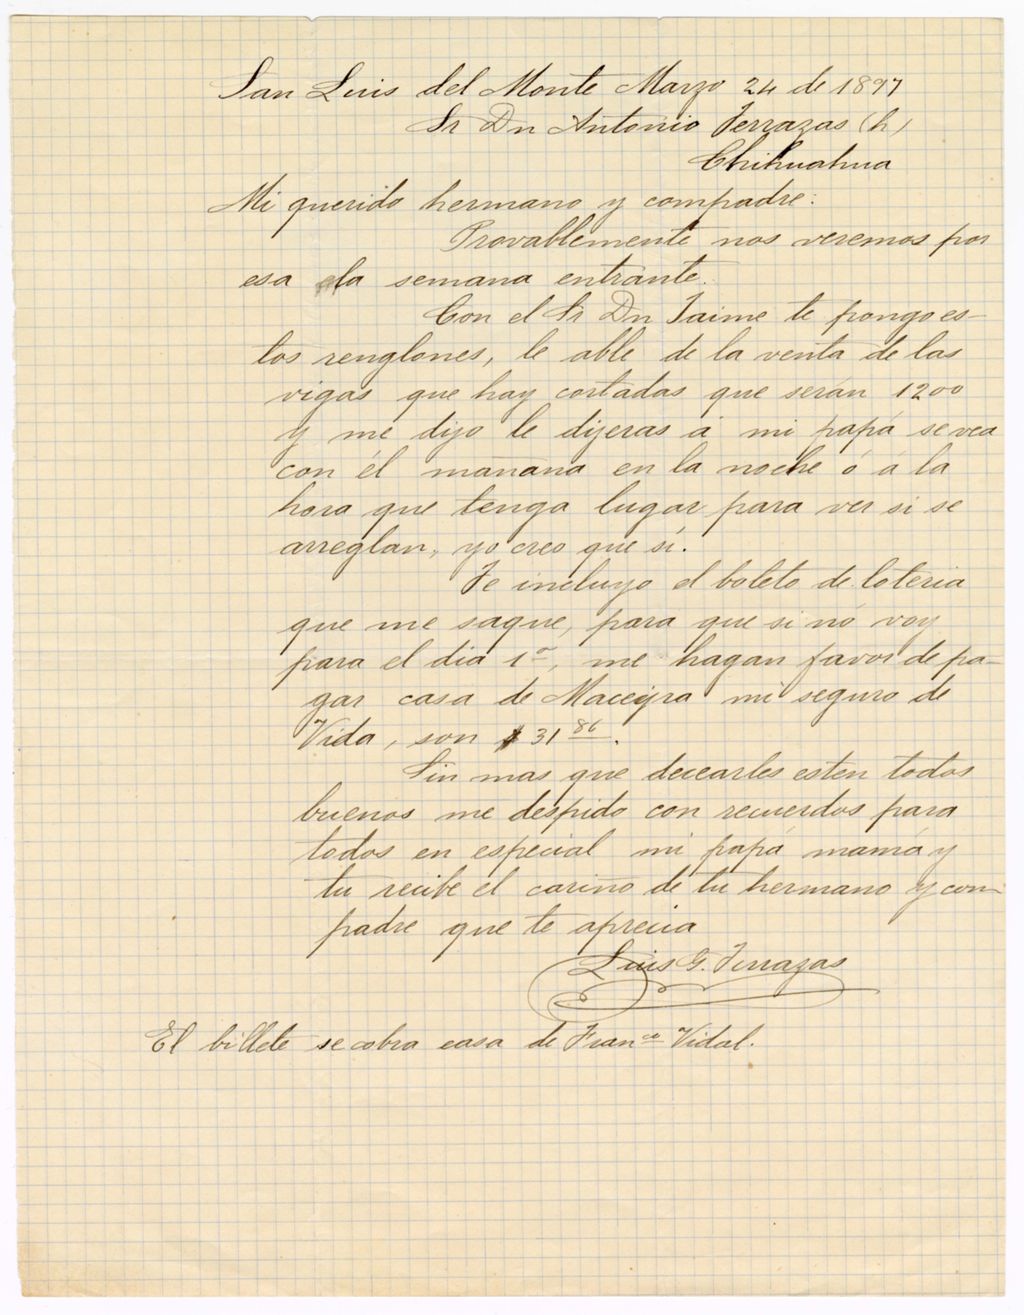 San Luis del Monte Marzo 24 de 1897
Sr Dn Antonio Terrazas (h)
Chihuahua
Mi querido hermano y compadre:
Provablemente nos veremos por
esa la semana entrante.
Con el Sr Dn Jaime te pongo es-
tos renglones, le able de la venta de las
vigas que hay cortadas que serán 1200
y me dijo le dijeras á mi papá se vea
con él mañana en la noche ó á la
hora que tenga lugar para ver si se
arreglan, yo creo que sí.
Te incluyo el boleto de loteria
que me saque, para que si nó voy
para el dia 1º, me hagan favor de pa-
gar casa de Maceyra mi seguro de
Vida, son $31 86.
Sin mas que decearles esten todos
buenos me despido con recuerdos para
todos en especial mi papá mamá y
tu recibe el cariño de tu hermano y com-
padre que te aprecia
Luis G. Terrazas
El billete se cobra casa de Franco Vidal.